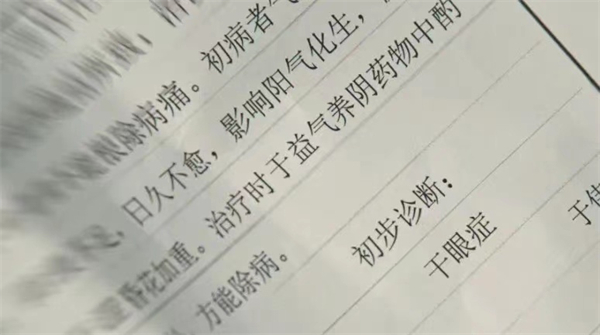 除病痛。初病者气
，日久不愈，影响阳气化生，
昏花加重。治疗时于益气养阴药物中酌
，方能除病。
初步诊断：
干眼症
于